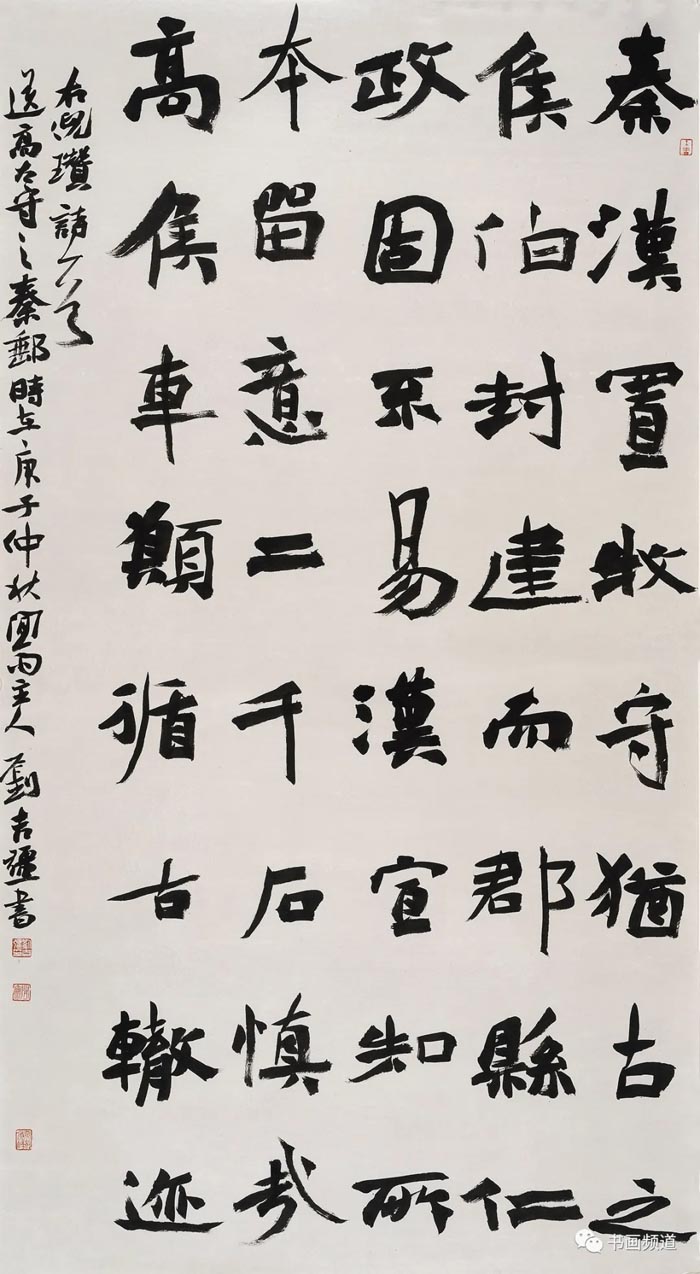 秦漢置牧守猶古之
侯伯封建而郡縣仁
政固不易漢宣知所
本留意二千石慎哉
高侯車顛循古轍迹
右倪瓚詩一首
送高太守之秦郵時在庚子仲秋聞雨主人劉吉疆書
书画频道